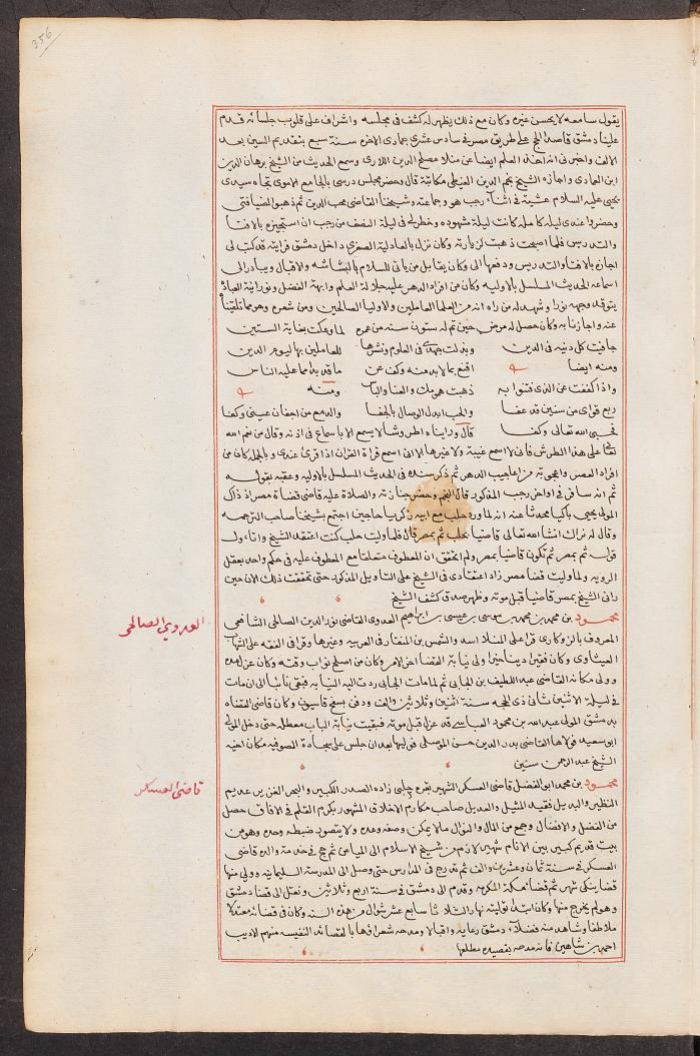 356
يقول سامعه لا يحسن غيره وكان مع ذلك يظهر له كشف في مجلسه واشراف على قلوب جلسائه قدم
علينا دمشق قاصد الحج على طريق مصر في سادس عشري جمادى الاخره سنة سبع بتقديم السين بعد
الالف واخبرني انه اخذ العلم ايضا عن منلا مصلح الدين اللاري وسمع الحديث من الشيخ برهان الدين
ابن العمادي واجازه الشيخ نجم الدين الغيطي مكاتبة قال وحضر مجلس درسي بالجامع الاموي تجاه سيدي
يحيى عليه السلام عشية في اثناء رجب هو وجماعة وشيخنا القاضي محب الدين ثم ذهبوا لضيافتي
وحضروا عندي ليلة كاملة كانت ليلة مشهوده وخطر لي في ليلة النصف من رجب ان استجيزه بالافتا
والتدريس فلما اصبحت ذهبت لزيارته وكان نزل بالعادلية الصغرى داخل دمشق فرايته قد كتب لي
اجازه بالافتا والتدريس ودفعها الي وكان يقابل من ياتي للسلام بالبشاشه والاقبال ويبادر الى
اسماعه الحديث المسلسل بالاوليه وكان من افراد الدهر عليه جلالة العلم وابهة الفضل ونورانية العباد
يتوقد وجهه نورا وشهد له من راه انه من العلما العاملين والاوليا الصالحين ومن شعره وهو مما تلقينا
عنه واجازنا به وكان حصل له مرض حين تم له ستون سنه من عمره لما وعكت بغاية الستين
جافيت كل دنيه في الدين وبذلت جهدي في العلوم ونشرها للعاملين بها ليوم الدين
ومنه ايضا اقنع بما لا بد منه وكف عن ما قد بدا مما عليه الناس
واذا كففت عن الذي فتنوا به ذهبت همومك والعنا والباس ومنه
ربع قواي من سنين قد عفا والحب ابدل الوصال بالجفا والدمع من اجفان عيني وكفا
فحسبي الله تعالى وكفا قال وراينه اطرشا لا يسمع الا باسماع في اذنه وقال من نعم الله
تعالى علي هذا الطرش فاني لا اسمع غيبة ولا غيرها الا اني اسمع قراة القران اذا قرئ عندي وبالجمله كان من
افراد العصر واعجوبة من اعاجيب الدهر ثم ذكر سنده في الحديث المسلسل بالاوليه وعقبه بقوله
ثم انه سافر في اواخر رجب المذكور قال النجم وحضر جنازته والصلاة عليه قاضي قضاة مصر اذ ذاك
المولى يحيى باكيا محدثا عنه انه لما ورد حلب مع ابيه زكريا حاجين اجتمع بشيخنا صاحب الترجمه
وقال له نراك انشا الله تعالى قاضيا بحلب ثم بمصر قال فلما وليت حلب كنت اعتقد الشيخ واتاول
قوله ثم بمصر ثم تكون قاضيا بمصر ولم اتحقق ان المعطوف متعلقا مع المعطوف عليه في حكم واحد بعقل
الرويه ولما وليت قضا مصر زاد اعتقادي في الشيخ على التاويل المذكور حتى تحققت ذلك الان حين
راني الشيخ بمصر قاضيا قبل موته وظهر صدق كشف الشيخ
محمود بن محمد بن محمد بن موسى بن عيسى بن ابراهيم العدوي القاضي نور الدين الصالحي الشافعي
العدوي الصالحي
المعروف بالزوكاري قرا على المنلا اسد والشمس بن المنقار في العربيه وغيرها وقرا في الفقه على الشهاب
العيثاوي وكان فقيرا دينا خيرا ولي نيابة القضا اخر الامر وكان من اصلح نواب وقته وكان عزل مده
وولي مكانه القاضي عبد اللطيف بن الجابي ثم لما مات الجابي ردت اليه النيابه فبقي نائبا الى ان مات
في ليلة الاثنين ثاني ذي الحجه سنة اثنين وثلاثين والف ودفن بسفح قاسيون وكان قاضي القضاه
بدمشق المولى عبد الله بن محمود العباسي قد عزل قبل موته فبقيت نيابة الباب معطله حتى دخل المولى
ابو سعيد فولاها القاضي بدر الدين حسن الموصلي فوليها بعد ان جلس على سجادة الصوفيه مكان اخيه
الشيخ عبد الرحمن سنين
محمود بن محمد ابو الفضل قاضي العسكر الشهير بقره چلبي زاده الصدر الكبير والبحر الغزير عديم
قاضي العسكر
النظير والبديل فقيد المثيل والعديل صاحب مكارم الاخلاق المشهور بكرم القلم في الافاق حصل
من الفضل والافضال وجمع من المال والنوال ما لا يمكن وصفه وعده ولا يتصور ضبطه وحده وهو من
بيت قديم كبير بين الانام شهير لازم من شيخ الاسلام الى الميامن ثم حج في خدمة والده قاضي
العسكر في سنة ثمان وعشرين والف ثم تدرج في المدارس حتى وصل الى المدرسة السليمانيه وولي منها
قضا ينكي شهر ثم قضا مكة المكرمه وقدم الى دمشق في سنة اربع وثلاثين ونقل الى قضا دمشق
وهو لم يخرج منها وكان ابتدا توليته نهار الثلاثا سابع عشر شوال من هذه السنه وكان في قضائه معتدلا
ملاطفا وشاهد منه فضلاء دمشق رعايه واقبالا ومدحه شعراؤها بالقصائد النفيسه منهم الاديب
احمد بن شاهين فانه مدحه بقصيده مطلعها